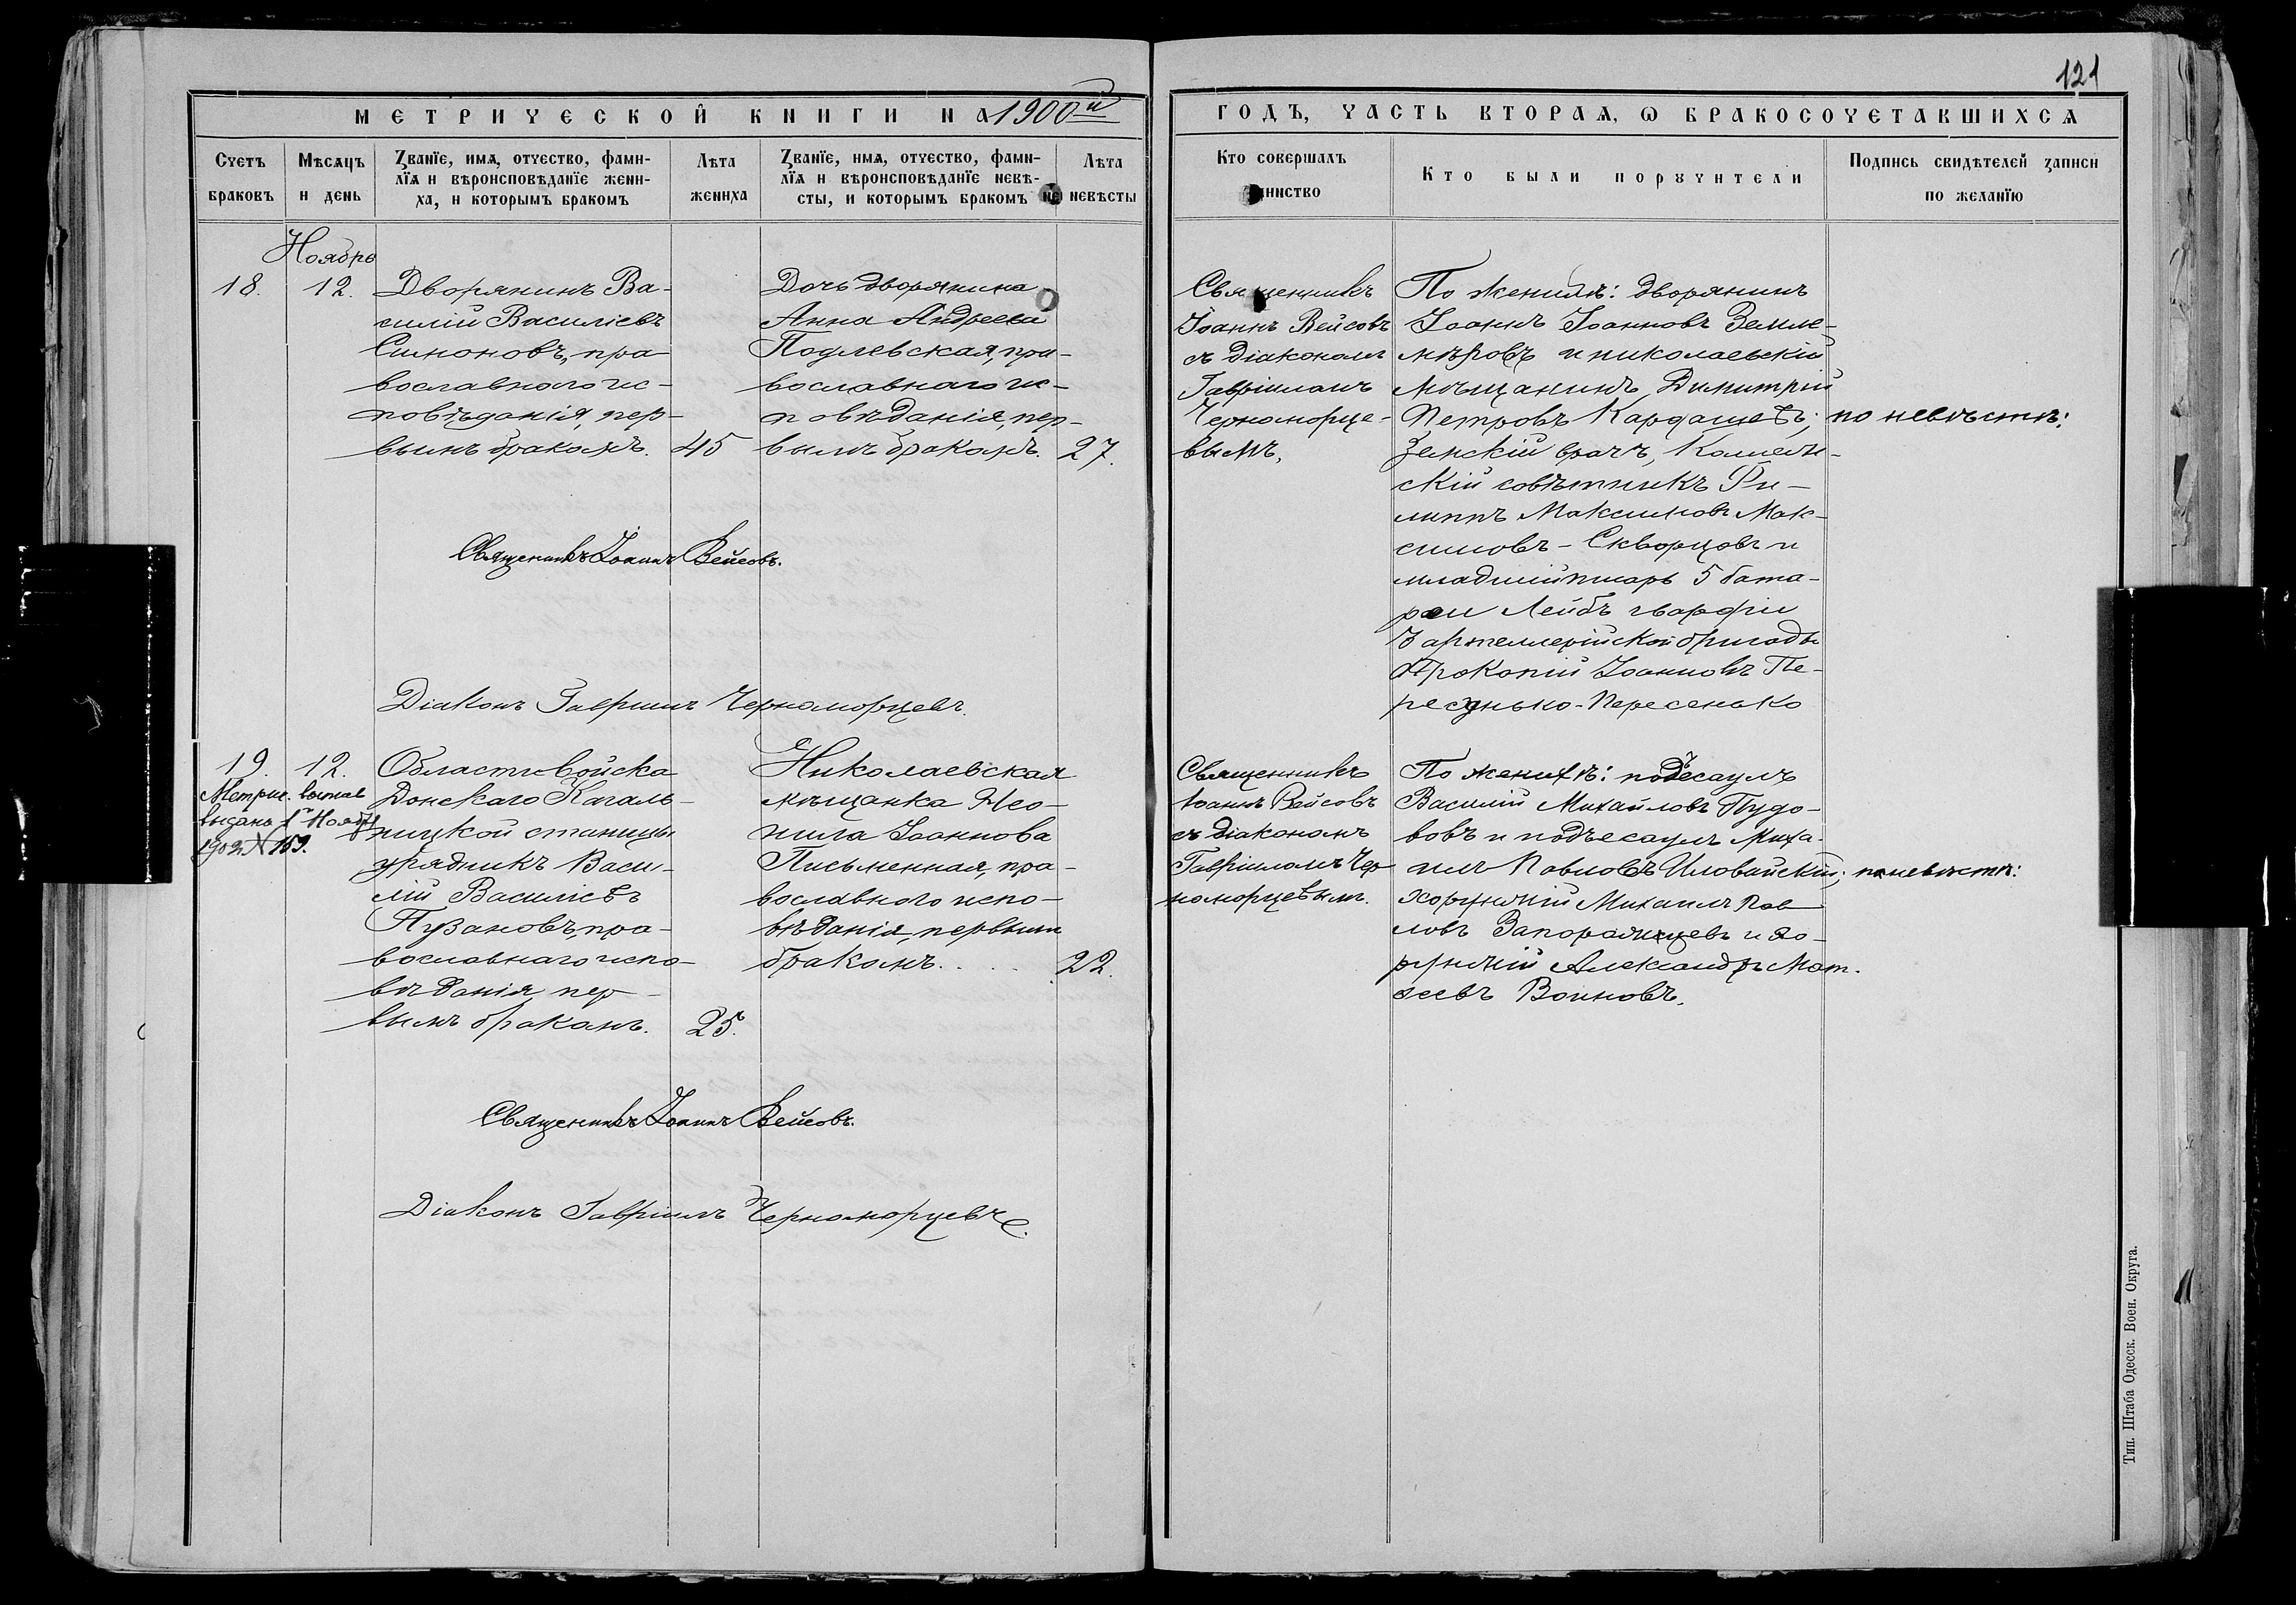 121
МЕТРИЧЕСКОЙ КНИГИ НА 1900й
ГОДЪ, ЧАСТЬ ВТОРАЯ, Ѡ БРАКОСОЧЕТАВШИХСЯ
Счетъ браковъ
Мѣсяцъ и день
Званїе, имя, отчество, фами-
лїя и вѣроисповѣданїе жени-
ха, и которымъ бракомъ
Лѣта жениха
Званїе, имя, отчество, фами-
лїя и вѣроисповѣданїе невѣ-
сты, и которымъ бракомъ
Лѣта невѣсты
Кто совершалъ
таинство
Кто были порꙋчители
Подпись свидѣтелей записи
по желанїю
Ноябрь
18.
12.
Дворянинъ Ва-
силій Василіевъ
Симоновъ, пра-
вославнаго ис-
повѣданія, пер-
вымъ бракомъ.
45
Дочь дворянина
Анна Андреева
Подлевская, пра-
вославнаго ис-
повѣданія, пер-
вымъ бракомъ.
27.
Священникъ
Іоаннъ Вейсовъ
съ діакономъ
Гавріиломъ
Черноморце-
вымъ.
По женихѣ: дворянинъ
Іоаннъ Іоанновъ Землe-
мѣровъ и николаевскій
мѣщанинъ Димитрій
Петровъ Кардашевъ; по невѣстѣ:
Земскій врачъ, Коллеж-
скій совѣтникъ Фи-
липпъ Максимовъ Мак-
симовъ-Скворцовъ и
младшій писарь 5 бата-
реи Лейбъ гвардіи
3 артиллерійской бригады
Прокопій Іоанновъ Пе-
ресунько-Пересенько
Священникъ Іоаннъ Вейсовъ.
Діаконъ Гавріилъ Черноморцевъ.
19.
12.
Метрич. выпись
выдана 1 Нояб.
1902г № 159.
Области войска
Донскаго Кагаль-
ницкой станицы
урядникъ Васи-
лій Василіевъ
Пузановъ, пра-
вославнаго испо-
вѣданія, пер-
вымъ бракомъ.
25.
Николаевская
мѣщанка Нео-
нила Іоаннова
Письменная, пра-
вославнаго испо-
вѣданія, первымъ
бракомъ. . . .
22.
Священникъ
Іоаннъ Вейсовъ
съ діакономъ
Гавріиломъ Чер-
номорцевымъ.
По женихѣ: подъесаулъ
Василій Михайловъ Грудо-
вовъ и подъесаулъ Миха-
илъ Павловъ Иловайскій; по невѣстѣ:
хорунжій Михаилъ Пав-
ловъ Запорожцевъ и хо-
рунжій Александръ Мат-
ѳеевъ Воиновъ.
Священникъ Іоаннъ Вейсовъ.
Діаконъ Гавріилъ Черноморцевъ.
Тип. Штаба Одесск. Воен. Округа.